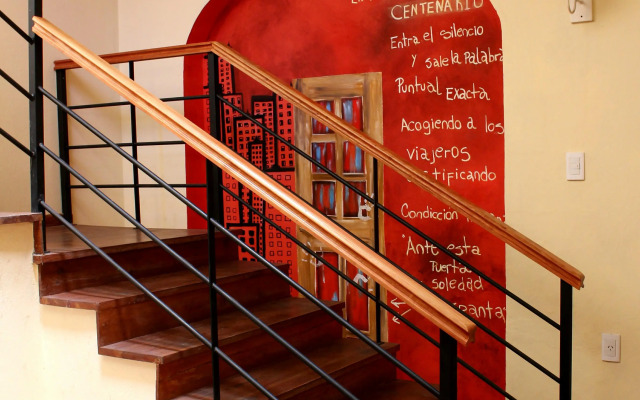 CENTENARIO
Entra el silencio
y sale la Palabra
Puntual Exacta
Acogiendo a los
viajeros
Condiccion
"Ante esta
soledad